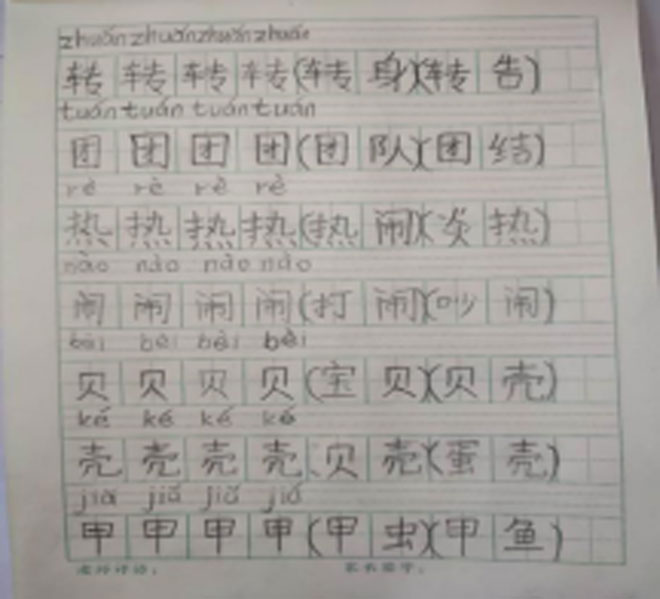 zhuǎn zhuǎn zhuǎn zhuǎn
转 转 转 转 (转 身)(转 告)
tuán tuán tuán tuán
团 团 团 团 (团 队)(团 结)
rè rè rè rè
热 热 热 热 (热 闹)(炎 热)
nào nào nào nào
闹 闹 闹 闹 (打 闹)(吵 闹)
bèi bèi bèi bèi
贝 贝 贝 贝 (宝 贝)(贝 壳)
ké ké ké ké
壳 壳 壳 壳 (贝 壳)(蛋 壳)
jiǎ jiǎ jiǎ jiǎ
甲 甲 甲 甲 (甲 虫)(甲 鱼)
老师评语: 家长签字: